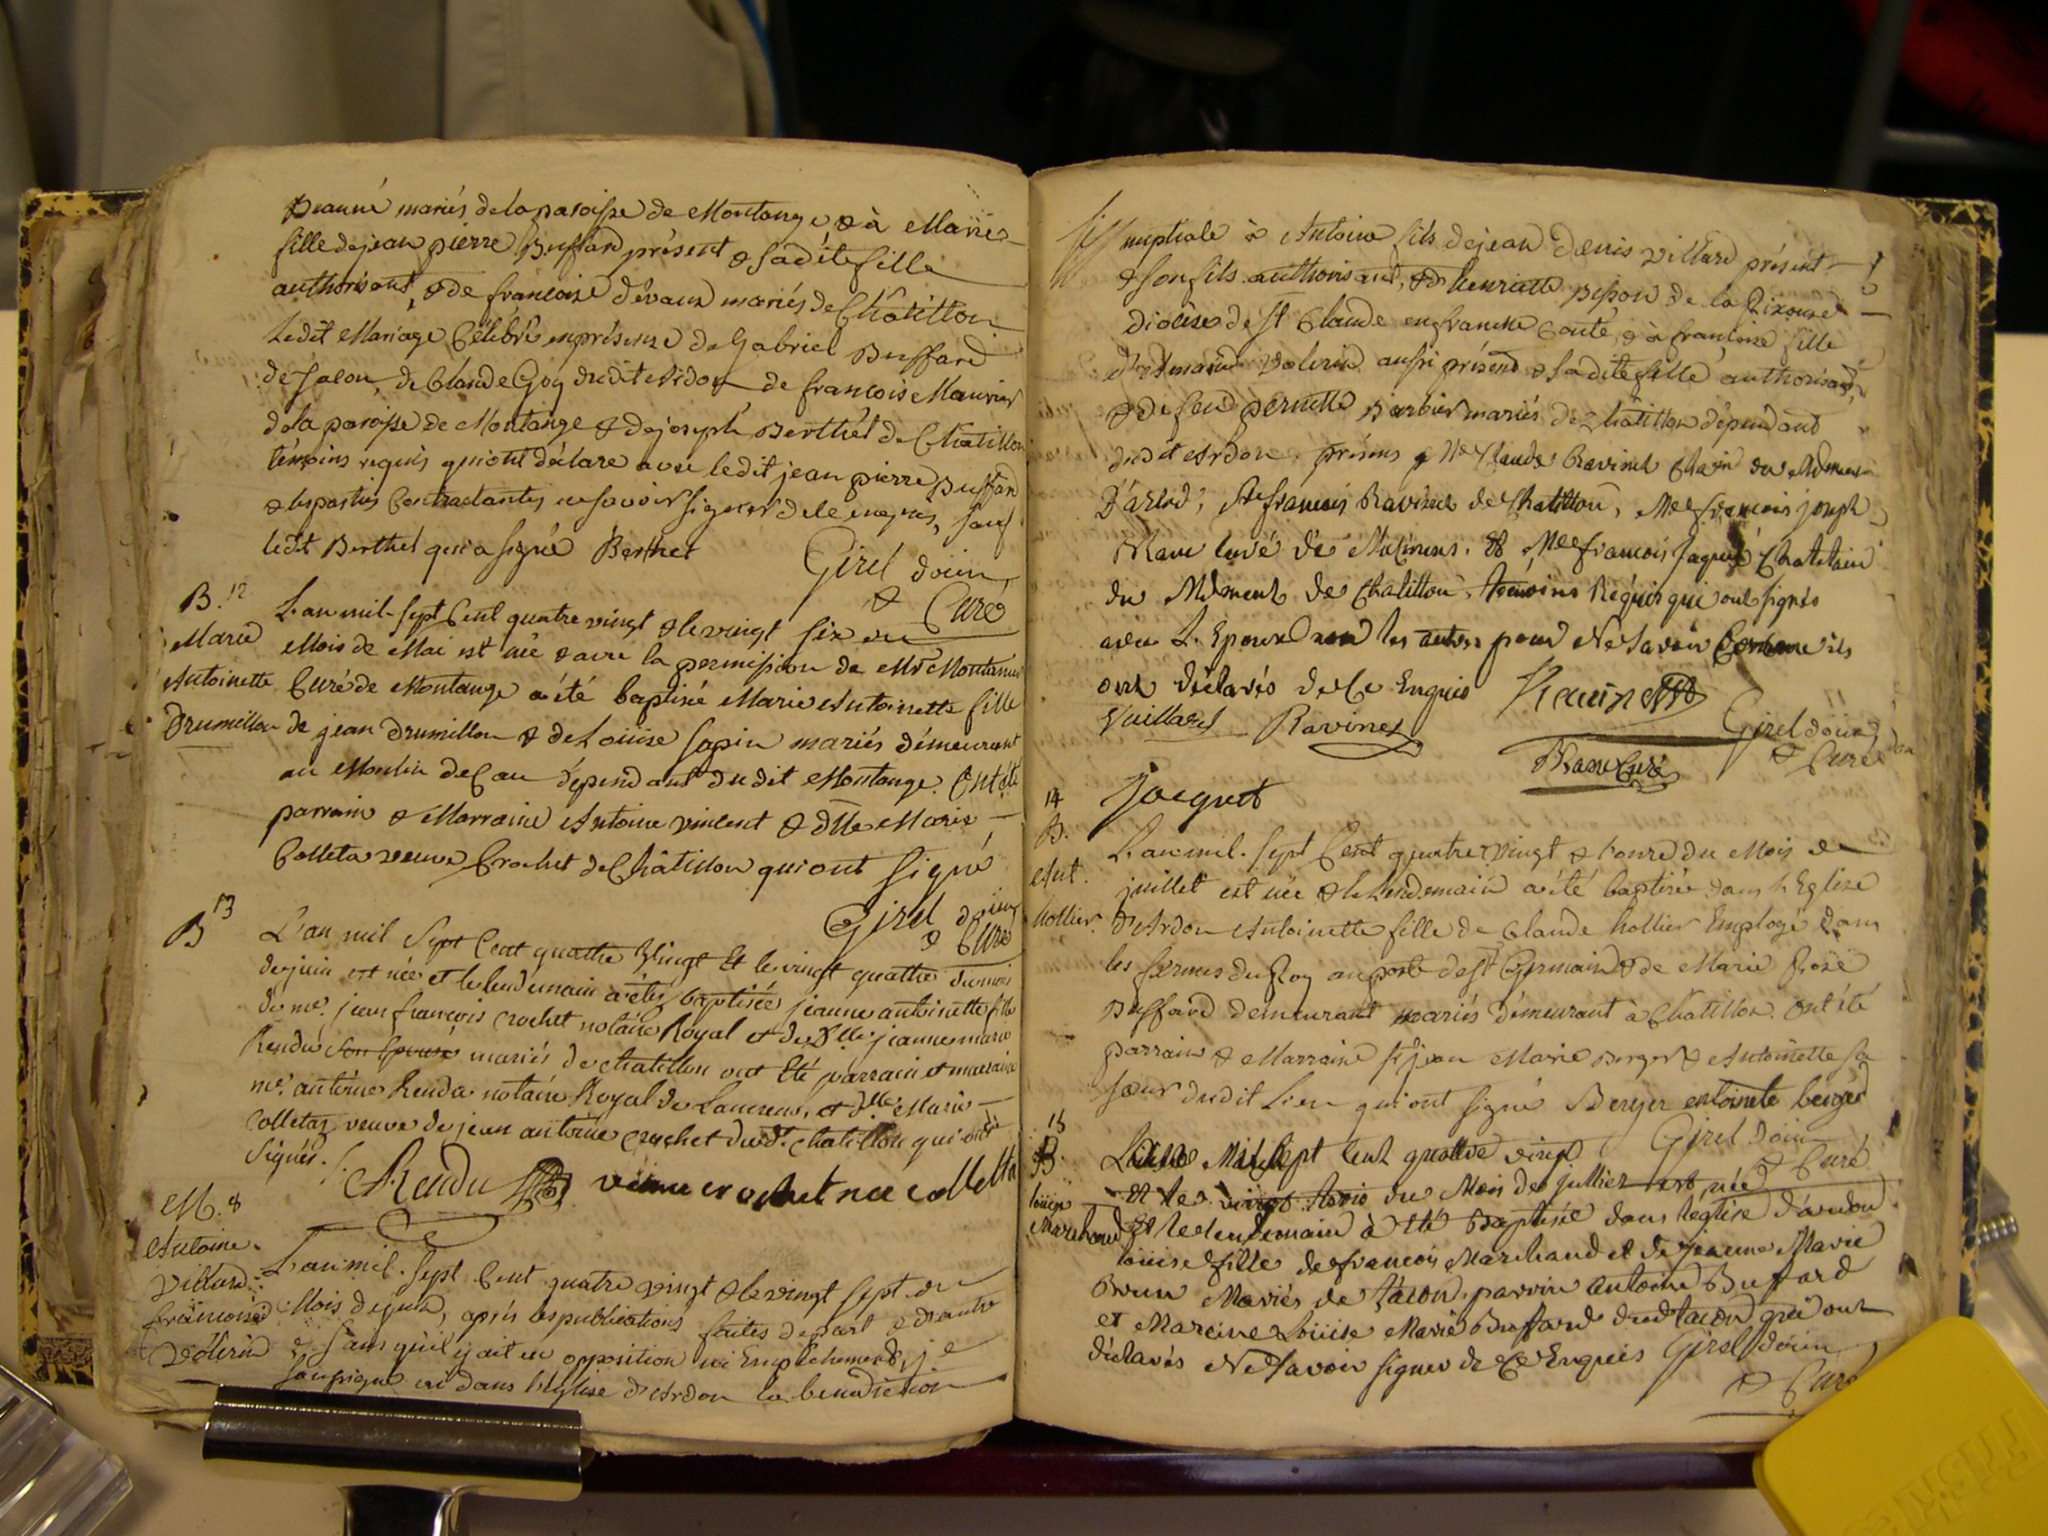 mariés de la paroisse de Montange & à Marie
fille de jean pierre Buffard présent & sadite fille
authorisant, & de francoise dévaux mariés de Châtillon
Ledit Mariage Célébré en présence de Gabriel Buffard
de Tacon, de Claude Goy dudit Ardon, de francois Maurier
de la paroisse de Montange & de joseph Berthet de Chatillon
témoins requis qui ont déclaré avec ledit jean pierre Buffard
& les parties Contractantes ne savoir signer de ce enquis, sauf
ledit Berthet qui a signé Berthet
Girel doïen
& Curé
B. 12
Marie
Antoinette
Drumillon
L'an mil sept Cent quatre vingt & le vingt six du
Mois de Mai est née & avec la permission de Mr Montanier
Curé de Montange a été baptisé Marie Antoinette fille
de jean Drumillon & de Loüise sapin mariés démeurant
au Moulin de Cou dépendant dudit Montange. Ont été
parrain & Marraine Antoine vincent & dlle Marie
Colleta veuve Crochet de Châtillon qui ont signé
Girel doïen
& Curé
B 13
L'an mil sept Cent quattre Vingt Et le vingt quattre du mois
de juin est née et le lendemain a étés baptisée jeanne antoinette fille
de me. jean françois crochet notaire Royal et de Dlle. jeanne marie
Rendu son Epouse mariés de chatillon ont Eté parrain et marraine
me. antoine Rendu notaire Royal de Lancrens, et dlle Marie
Colletaz veuve de jean antoine crochet dud. chatillon qui ont
signés.
Rendu veuve crochet nee colletta
M. 8
Antoine
Villard
francoise
Volerin
L'an mil sept Cent quatre vingt & le vingt sept du
Mois de juin, après les publications faites de part & d'autre
& sans qu'il y ait eu opposition ni Empêchement, je
soussigné ai dans l'église d'Ardon la benediction
nuptiale à Antoine fils de jean Denis villard présent
& son fils authorisant, & d'henriette pesson de la Rixouse
diocèse de St Claude en franche Conté, & à francoise fille
d'Armand Volerin aussi présent & sadite fille authorisant,
& de feu pernette Barbier mariés de Châtillon dépendant
dudit Ardon. présens Me Claude Ravinet Chatn du Mdment
D'arlod, Me francois Ravinet de Chatillon, Me francois joseph
Blanc Curé de & Me francois Jaquet Chatelain
du Mdment de Chatillon, témoins Réquis qui ont signés
avec L'Epoux non les autres pour Ne savoir Comme ils
ont déclarés de Ce Enquis
Vuillard Ravinet Ravinet
Girel doïen
& Curé d'an
Blanc Curé
Jacquet
14
B.
Ant.
hollier.
L'an mil sept Cent quatre vingt & l'onze du Mois de
juillet est née & le lendemain a été baptisée dans l'Eglise
d'Ardon Antoinette fille de Claude hollier Employé dans
les fermes du Roy au poste de St Germain & de Marie Rose
Buffard demeurant mariés démeurant à Châtillon. Ont été
parrain & Marraine Sr jean Marie Berger & Antoinette sa
sœur dudit Lieu qui ont signé Berger entoinete berger
Girel doïen
& Curé
15
B.
loüise
Marchand
L'année Mil Sept Cent quattre vingt
Et le vingt trois du Mois de juillier est née
Et le lendemain à été Baptisée dans leglise d'ardon
louise fille de francois Marchand et de jeanne Marie
Brun Mariés de tacon. parrin antoine Buffard
et Mareine Loüise Marie Buffard dud tacon qui ont
déclarés Ne savoir signer de Ce Enquis Girel doïen
& Curé